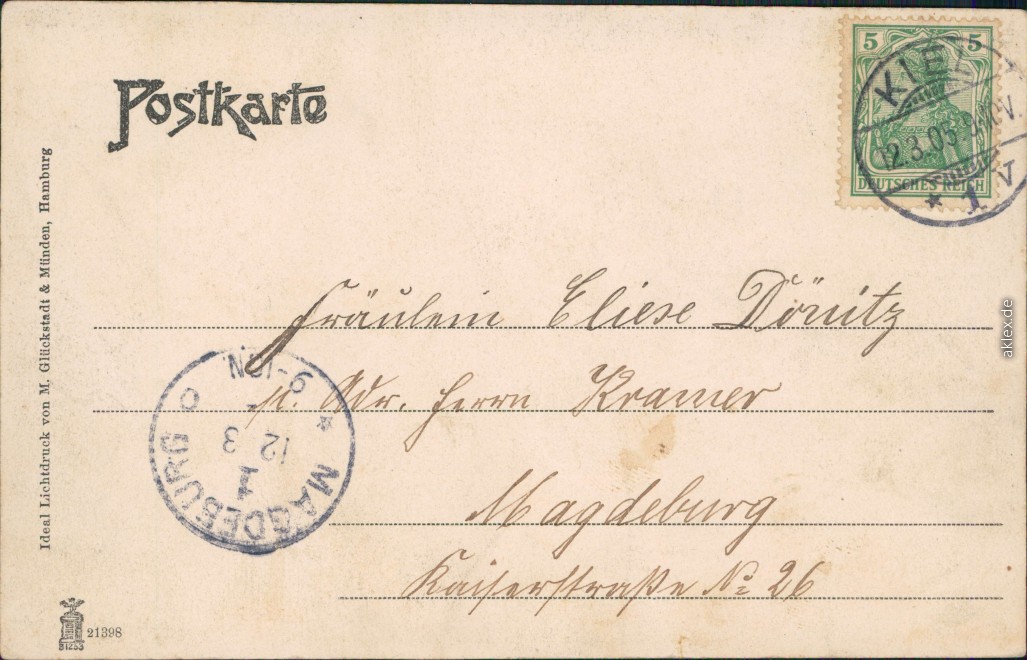 Postkarte
5 5
DEUTSCHES REICH
KIEL
12.3.05
* 1 V
Ideal Lichtdruck von M. Glückstadt & Münden, Hamburg
Fräulein Eliese Dönitz
Adr. Herrn Kramer
Magdeburg
Kaiserstraße No 26
9-10N
12 3
1
* MAGDEBURG
21398
31253
aklex.de